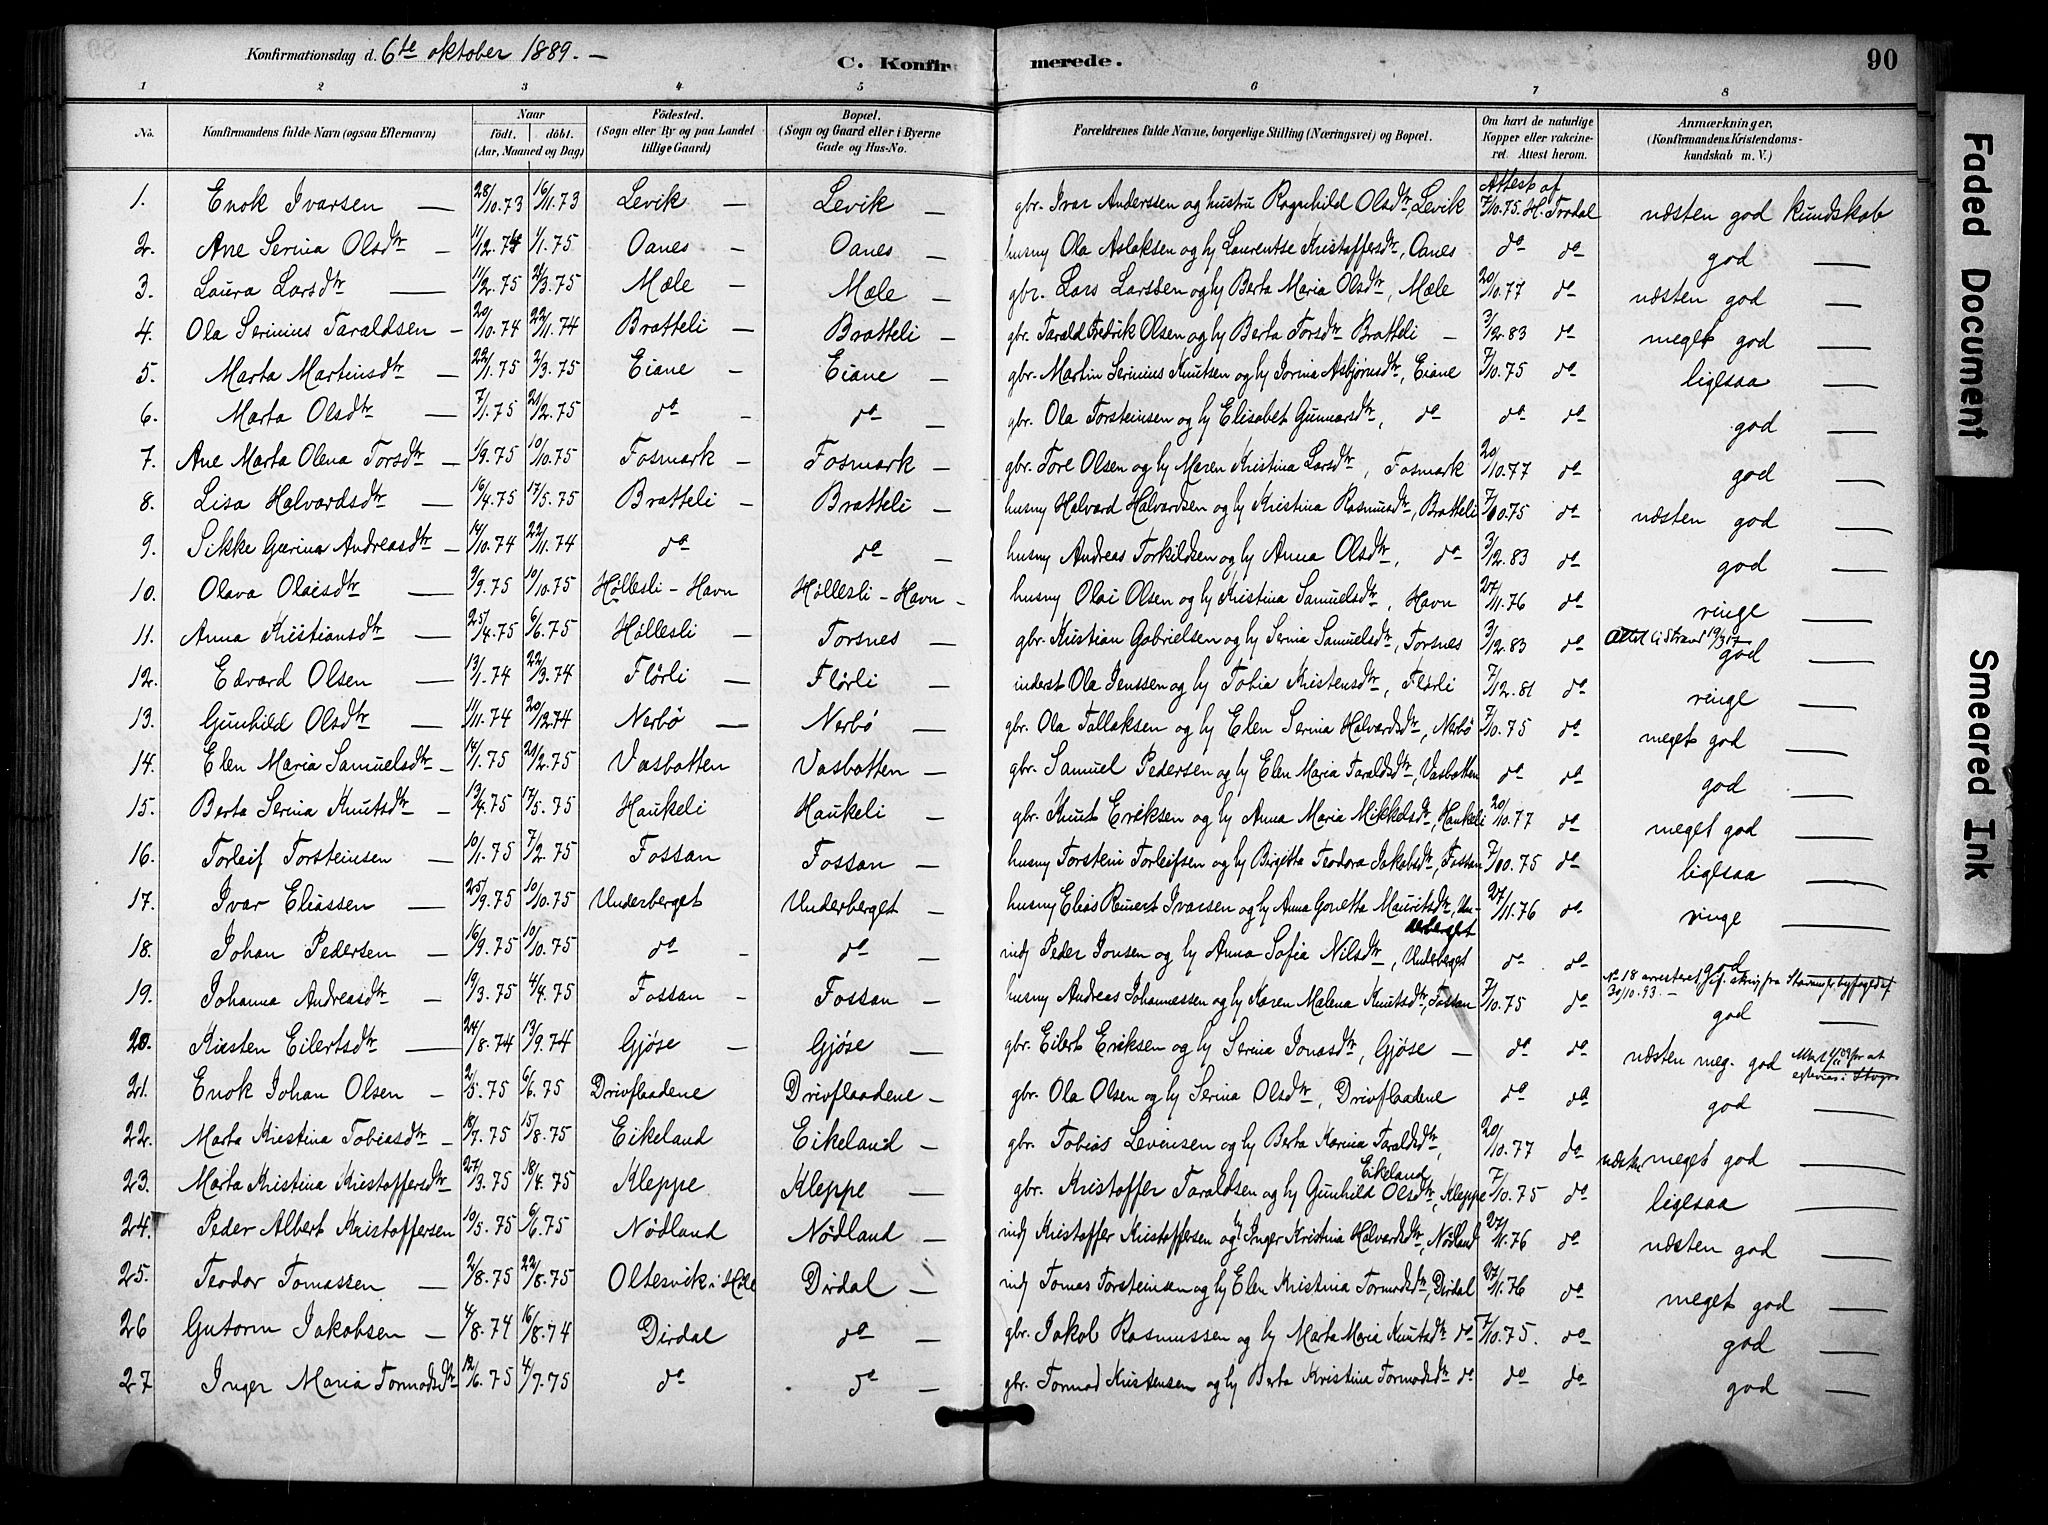 Konfirmationsdag d. 6te oktober 1889. —
C. Konfirmerede.
90
1 2 3 4 5 6 7 8
No. Konfirmandens fulde Navn (ogsaa Efternavn) Naar født. døbt. (Aar, Maaned og Dag) Fødested. (Sogn eller By og paa Landet tillige Gaard) Bopæl. (Sogn og Gaard eller i Byerne Gade og Hus-No. Forældrenes fulde Navne, borgerlige Stilling (Næringsvei) og Bopæl. Om havt de naturlige Kopper eller vakcineret. Attest herom. Anmærkninger, (Konfirmandens Kristendomskundskab m. V.)
1. Enok Ivarsen — 28/10.73 16/11.73 Levik — Levik — gbr. Ivar Anderssen og hustru Ragnhild Olsdtr, Levik Attest af 7/10.75. H. Tordal næsten god kundskab
2. Ane Serina Olsdtr — 11/12.74 1/1.75 Oanes — Oanes — husmy Ola Aslaksen og hy Laurentse Kristoffersdtr, Oanes do do god —
3. Laura Larsdtr — 11/2.75 21/3.75 Mæle — Mæle — gbr. Lars Larssen og hy Berta Maria Olsdtr, Mæle 20/10.77 do næsten god —
4. Ola Serinius Taraldsen — 20/10.74 22/11.74 Bratteli — Bratteli — gbr. Tarald Fredrik Olsen og hy Berta Torsdtr Bratteli — 3/12.83 do meget god —
5. Marta Martinsdtr — 22/1.75 2/3.75 Eiane — Eiane — gbr. Martin Serinius Knutsen og hy Jorina Asbjørnsdtr, Eiane 7/10.75 do ligesaa —
6. Marta Olsdtr — 7/1.75 21/2.75 do — do — gbr. Ola Torsteinsen og hy Elisabet Gunnarsdtr, do do do god —
7. Ane Marta Olena Torsdtr — 1/9.75 10/10.75 Fosmark — Fosmark — gbr. Tore Olsen og hy Maren Kristina Larsdtr, Fosmark 20/10.77 do god —
8. Lisa Halvardsdtr — 16/4.75 17/5.75 Bratteli — Bratteli — husmy Halvard Halvardsen og hy Kristina Rasmusdtr, Bratteli 7/10.75 do næsten god —
9. Sikke Gurina Andreasdtr — 14/10.74 22/11.74 do do — husmy Andreas Torkildsen og hy Anna Olsdtr, do 3/12.83 do god —
10. Olava Olaisdtr — 3/9.75 10/10.75 Høllesli - Havn Høllesli - Havn — husmy Olai Olsen og hy Kristina Samuelsdtr, Havn 27/11.76 do ringe —
11. Anna Kristiansdtr — 25/4.75 6/6.75 Høllesli — Torsnes — gbr. Kristian Gabrielsen og hy Serina Samuelsdtr, Torsnes 3/12.83 do god —
12. Edvard Olsen — 13/1.74 22/3.74 Flørli — Flørli — inderst Ola Jenssen og hy Tobia Kristensdtr, Flørli 7/12.81 do ringe —
13. Gunhild Olsdtr — 11/11.74 20/12.74 Nerbø — Nerbø — gbr. Ola Tallaksen og hy Elen Serina Halvardsdtr, Nerbø 7/10.75 do meget god —
14. Elen Maria Samuelsdtr — 14/1.75 21/2.75 Vasbotten Vasbotten — gbr. Samuel Pedersen og hy Elen Maria Taraldsdtr, Vasbotten do do god —
15. Berta Serina Knutsdtr — 13/4.75 17/5.75 Haukeli Haukeli — gbr. Knut Eriksen og hy Anna Maria Mikkelsdtr, Haukeli 20/10.77 do meget god —
16. Torleif Torsteinsen — 10/1.75 7/2.75 Fossan Fossan — husmy Torstein Torleifsen og hy Birgitta Teodora Jakobsdtr, Fossan 7/10.75 do ligesaa —
17. Ivar Eliassen — 25/9.75 10/10.75 Underberget Underberget — husmy Elias Reinert Ivarsen og hy Anna Gonetta Mauritsdtr, Underberget 27/11.76 do ringe —
18. Johan Pedersen — 16/9.75 10/10.75 do — do — indj Peder Jonsen og hy Anna Sofia Nilsdtr, Underberget do do god —
19. Johanna Andreasdtr — 19/3.75 4/4.75 Fossan — Fossan — husmy Andreas Johannessen og hy Karen Malena Knutsdtr, Fossan 7/10.75 do No 18 arresteret, 30/10.93. — god —
20. Kirsten Eilertsdtr — 24/8.74 13/9.74 Gjøse — Gjøse — gbr. Eilert Eriksen og hy Serina Jonasdtr, Gjøse — do do næsten meg. god
21. Enok Johan Olsen — 2/5.75 6/6.75 Drivflaadene Drivflaadene — gbr. Ola Olsen og hy Serina Olsdtr, Drivflaadene do do god —
22. Marta Kristina Tobiasdtr — 18/7.75 15/8.75 Eikeland Eikeland — gbr. Tobias Levinsen og hy Berta Karina Taraldsdtr, Eikeland 20/10.77 do næsten meget god —
23. Marta Kristina Kristoffersdtr 27/3.75 18/4.75 Kleppe Kleppe — gbr. Kristoffer Taraldsen og hy Gunhild Olsdtr, Kleppe 7/10.75 do ligesaa —
24. Peder Albert Kristoffersen 10/5.75 6/6.75 Nødland Nødland — indj Kristoffer Kristoffersen og hy Inger Kristina Halvardsdtr, Nødland 27/11.76 do næsten god —
25. Teodor Tomassen — 2/8.75 22/8.75 Oltesvik i Høle Dirdal — indj Tomas Torsteinsen og hy Elen Kristina Tormodsdtr, Dirdal 27/11.76 do meget god —
26 Gutorm Jakobsen — 4/8.74 16/8.74 Dirdal do — gbr. Jakob Rasmussen og hy Marta Maria Knutsdtr do 7/10.75. do god —
27 Inger Maria Tormodsdtr 12/6.75 4/7.75 do do — gbr. Tormod Kristensen og hy Berta Kristina Tormodsdtr do do do god —
Faded Document
Smeared Ink